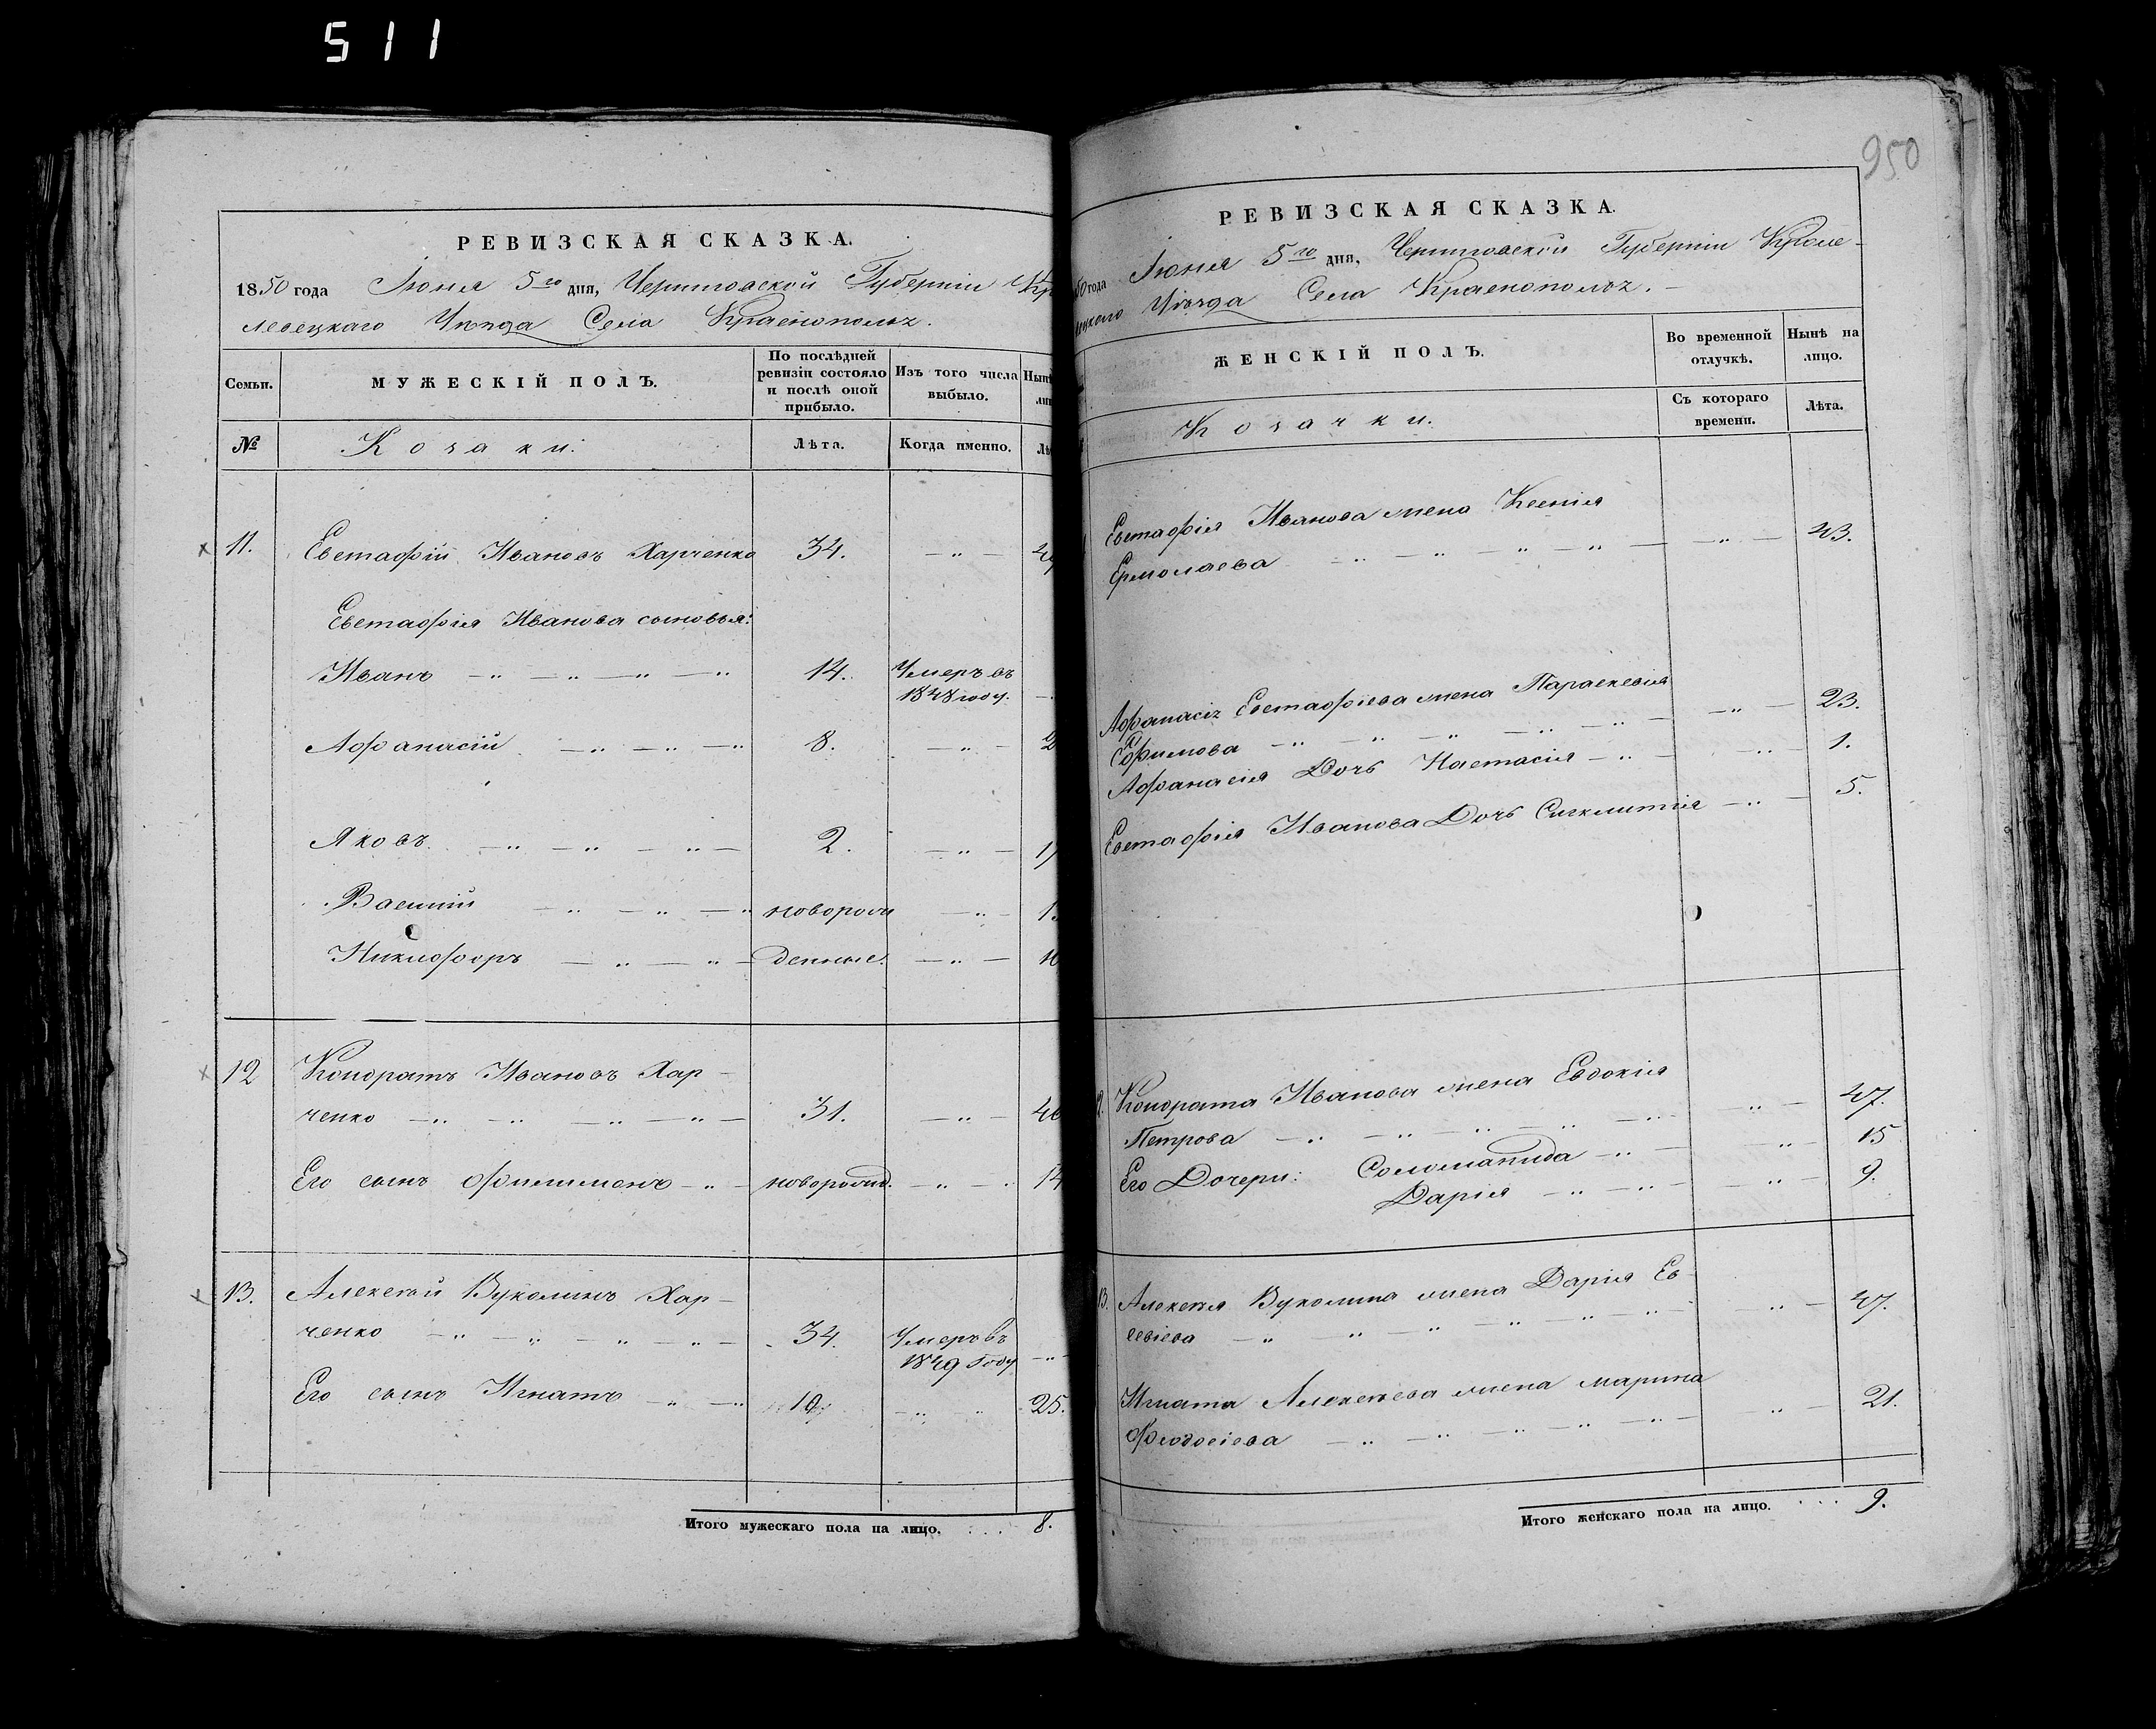 511
РЕВИЗСКАЯ СКАЗКА.
1850 года Іюня 5го дня, Черниговской Губерніи Кр
левецкаго Уѣзда Села Краснополь.
Семьи.
МУЖЕСКІЙ ПОЛЪ.
По послѣдней ревизіи состояло и послѣ оной прибыло.
Изъ того числа выбыло.
№
Козаки:
Лѣта.
Когда именно.
11. Евстафій Ивановъ Харченко 34.
Евстафія Иванова сыновья:
Иванъ 14. Умеръ въ
1848 году.
Афанасій 8.
Яковъ 2.
Василій новорож
Никифоръ денные.
12 Кондратъ Ивановъ Хар-
ченко 31.
Его сынъ Филимонъ новорожд. 14
13. Алексѣй Вуколинъ Хар-
ченко 34. Умеръ въ
1849 году
Его сынъ Игнатъ 19. 25.
Итого мужескаго пола на лицо. 8.
950
РЕВИЗСКАЯ СКАЗКА.
50 года Іюня 5го дня, Черниговской Губерніи Кроле-
вецкаго Уѣзда Села Краснополь.
ЖЕНСКІЙ ПОЛЪ.
Во временной отлучкѣ.
Нынѣ на лицо.
Козачки.
Съ котораго времени.
Лѣта.
Евстафія Иванова жена Ксенія
Ермолаева 43.
Афанасія Евстафіева жена Параскевія
Ефимова 23.
Афанасія Дочь Настасія 1.
Евстафія Иванова Дочь Сигклитія 5.
Кондрата Иванова жена Евдокія
Петрова 47.
Его Дочери: Соломанида 15
Дарія 9.
13. Алексѣя Вуколина жена Дарія Ев-
сѣвіева 47.
Игната Алексѣева жена Марина
Феодосіева 21.
Итого женскаго пола на лицо. 9.